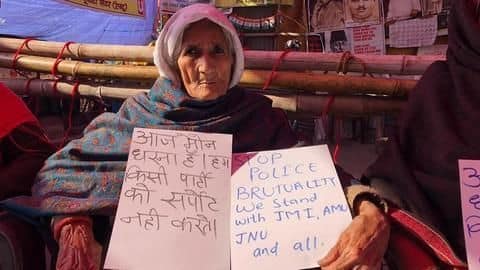 आज मौन
धरना है। हम
किसी पार्टी
को सर्पोट
नहीं करते।
STOP
POLICE
BRUTUALITY
We Stand
with JMI, AMU
JNU
and all.